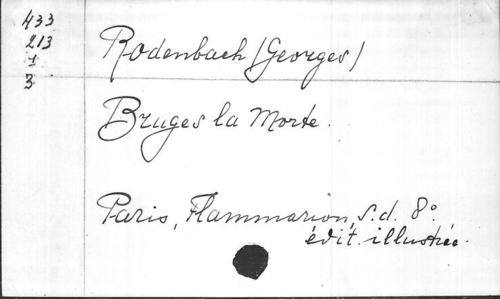 433
213
1
3
Rodenbach (Georges)
Bruges la Morte.
Paris, Flammarion, s.d. 8°.
édit. illustrée.